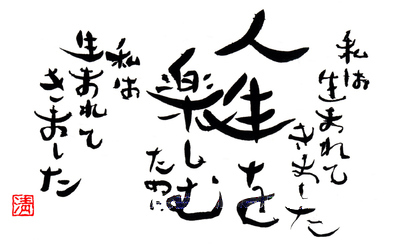 私は
生まれて
きました
人生を
楽しむ
ため
私は
生まれて
きました
清